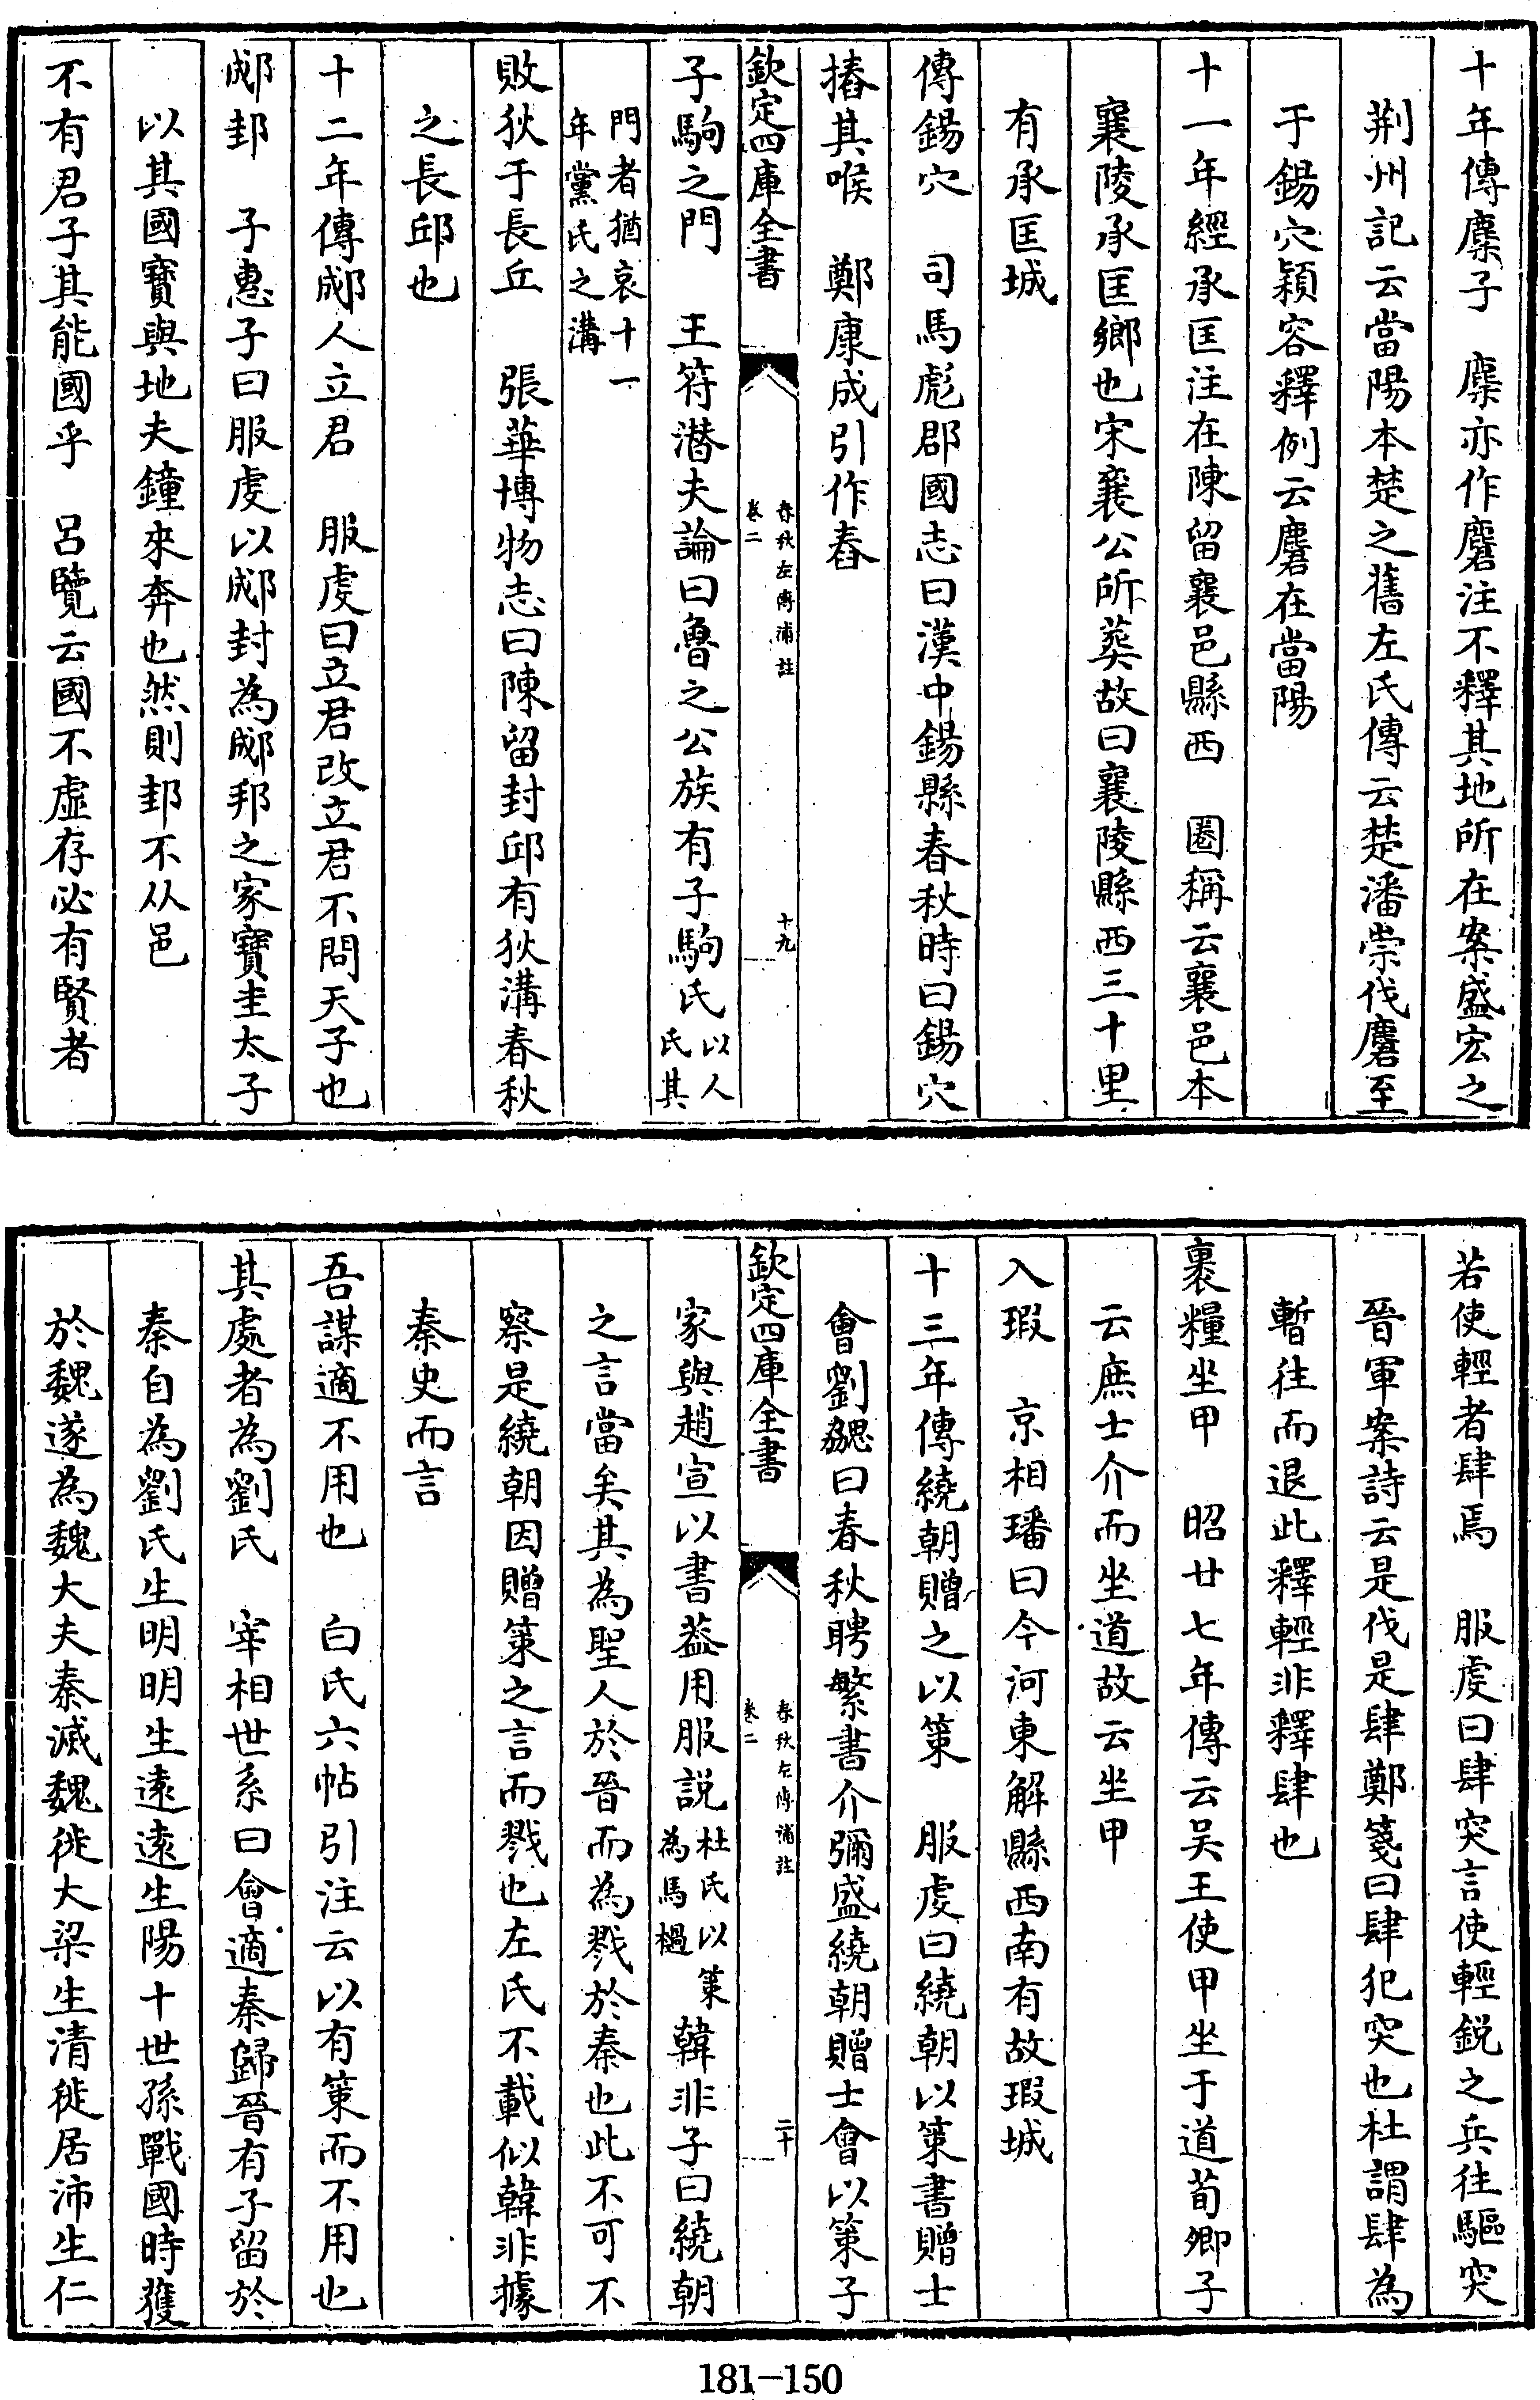 十年傳麋子　麇亦作麏注不釋其地所在案盛宏之
荆州記云當陽本楚之舊左氏傳云楚潘崇伐麏至
于錫穴穎容釋例云麏在當陽
十一年經承匡注在陳留襄邑縣西　圈稱云襄邑本
襄陵承匡鄉也宋襄公所葬故曰襄陵縣西三十里
有承匡城
傳錫穴　司馬彪郡國志曰漢中錫縣春秋時曰錫穴
摏其喉　鄭康成引作舂
欽定四庫全書
春秋左傳補註
卷二
十九
子駒之門　王符潛夫論曰魯之公族有子駒氏以人氏其
門者猶哀十一年黨氏之溝
敗狄于長丘　張華博物志曰陳留封邱有狄溝春秋
之長邱也
十二年傳郕人立君　服虔曰立君改立君不問天子也
郕邽　子惠子曰服虔以郕封為郕邦之家寶圭太子
以其國寶與地夫鐘來奔也然則邽不从邑
不有君子其能國乎　呂覽云國不虛存必有賢者
若使輕者肆焉　服虔曰肆突言使輕鋭之兵往驅突
晉軍案詩云是伐是肆鄭箋曰肆犯突也杜謂肆為
暫往而退此釋輕非釋肆也
裹糧坐甲　昭廿七年傳云吴王使甲坐于道荀卿子
云庶士介而坐道故云坐甲
入瑕　京相璠曰今河東解縣西南有故瑕城
十三年傳繞朝贈之以策　服虔曰繞朝以策書贈士
會劉勰曰春秋聘繁書介彌盛繞朝贈士會以策子
欽定四庫全書
春秋左傳補註
卷二
二十
家與趙宣以書葢用服説杜氏以策為馬檛韓非子曰繞朝
之言當矣其為聖人於晉而為戮於秦也此不可不
察是繞朝因贈策之言而戮也左氏不載似韓非據
秦史而言
吾謀適不用也　白氏六帖引注云以有策而不用也
其處者為劉氏　宰相世系曰會適秦歸晉有子留於
秦自為劉氏生明明生遠遠生陽十世孫戰國時獲
於魏遂為魏大夫秦滅魏徙大梁生清徙居沛生仁
181-150